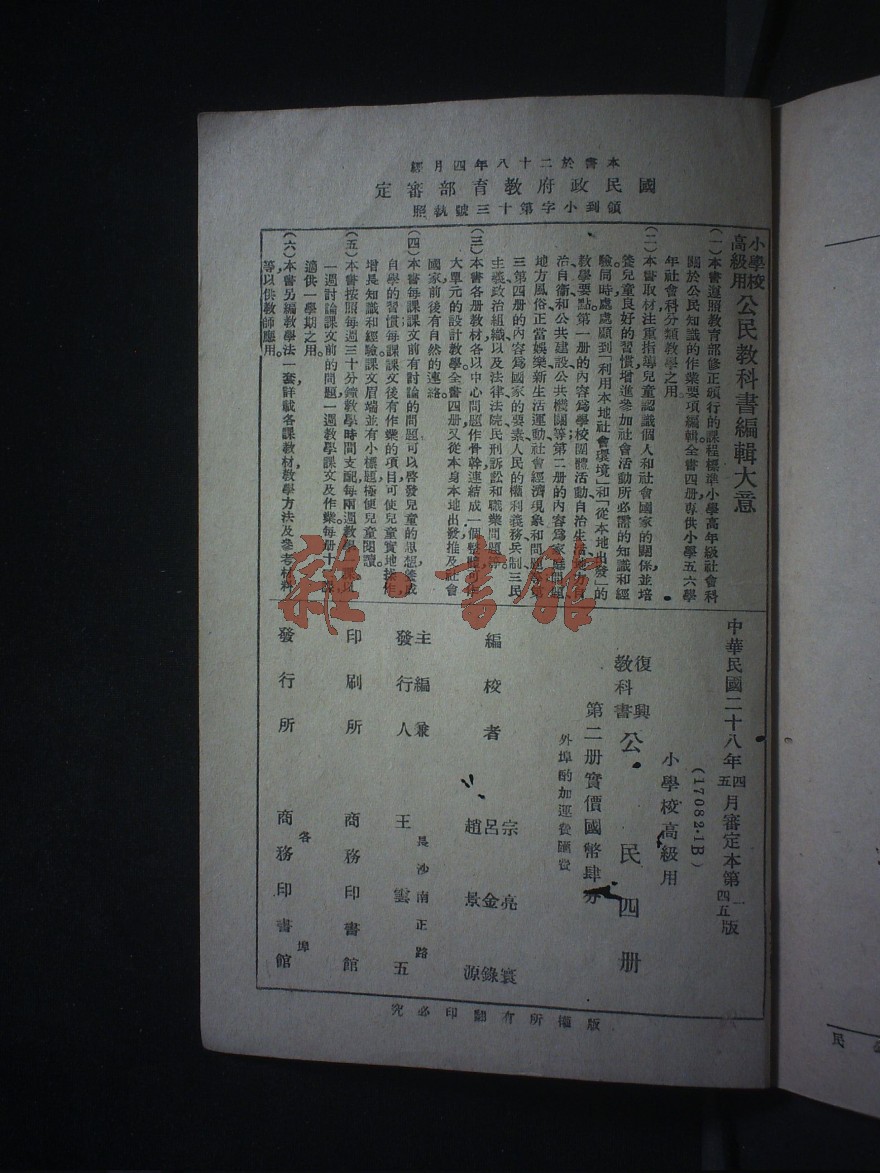 本書於二十八年四月經
國民政府教育部審定
領到小字第十三號執照
小學校高級用 公民教科書編輯大意
(一)本書遵照教育部修正頒行的課程標準小學高年級社會科
關於公民知識的作業要項編輯。全書四册,專供小學五六學
年社會科分類教學之用。
(二)本書取材,注重指導兒童認識個人和社會國家的關係,並培
養兒童良好的習慣,增進參加社會活動所必需的知識和經
驗;同時處處顧到「利用本地社會環境」和「從本地出發」的
教學要點。第一册的內容爲學校團體活動、自治生活、地方自
治、自衛和公共建設、公共機關等;第二册的內容爲家庭問題、
地方風俗、正當娛樂、新生活運動、社會經濟現象和問題等;第
三第四册的內容爲國家的要素、人民的權利義務、兵制、三民
主義、政治組織以及法律、法院、民刑訴訟和職業問題等。
(三)本書各册教材,各以中心問題作骨幹,連結成一個整體,可作
大單元的設計教學。全書四册,又從本身本地出發,推及社會
國家,前後有自然的連絡。
(四)本書每課課文前有討論的問題,可以啓發兒童的思想,養成
自學的習慣;每課課文後有作業的項目,可使兒童實地操作,
增長知識和經驗。課文眉端並有小標題,極便兒童閱讀。
(五)本書按照每週三十分鐘教學時間支配,每兩週教學一課,以
一週討論課文前的問題,一週教學課文及作業。每册十課,
適供一學期之用。
(六)本書另編教學法一套,詳載各課教材、教學方法及參考材料
等,以供教師應用。
中華民國二十八年四五月審定本第一四五版
(17082·1B)
小學校高級用
復興教科書 公民 四册
第二册實價國幣肆分
外埠酌加運費匯費
編校者 宗亮寰 呂金錄 趙景源
主編兼發行人 長沙南正路 王雲五
印刷所 商務印書館
發行所 各埠 商務印書館
版權所有翻印必究
雜·書館
公民